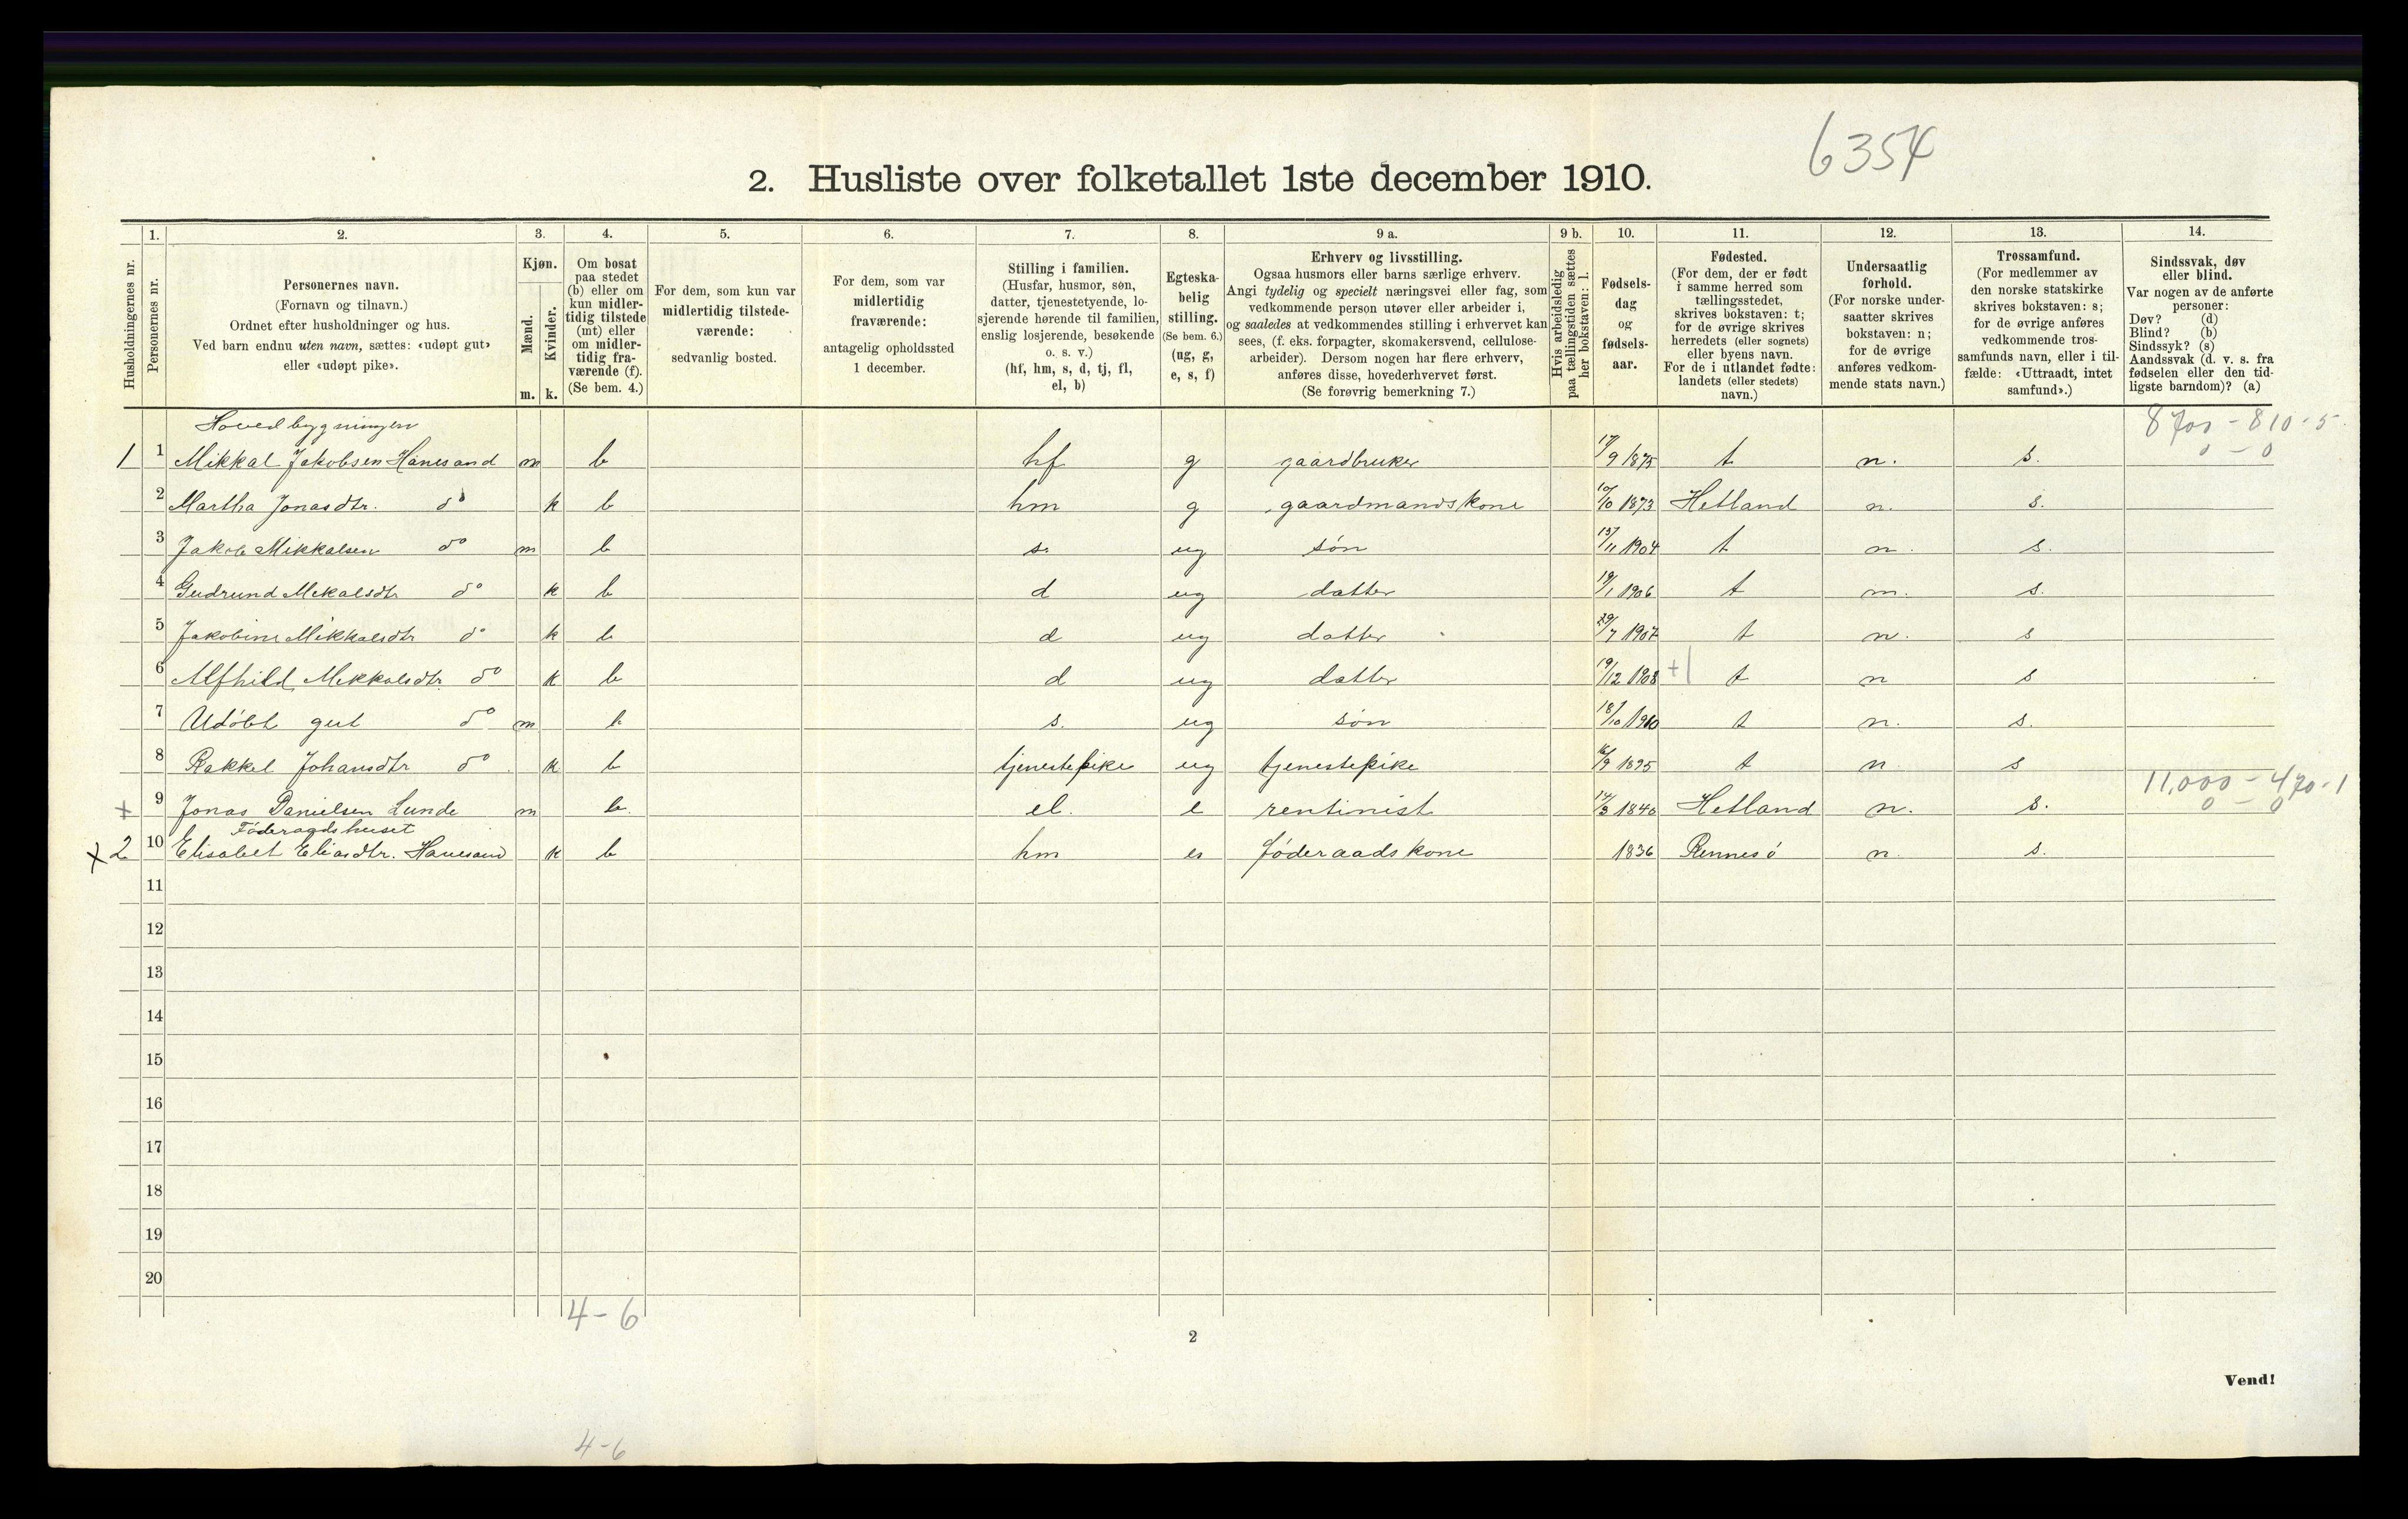 6354
2. Husliste over folketallet 1ste december 1910.
1. 2. 3. 4. 5. 6. 7. 8. 9 a. 9 b. 10. 11. 12. 13. 14.
Husholdningernes nr.
Personernes nr.
Personernes navn.
(Fornavn og tilnavn.)
Ordnet efter husholdninger og hus.
Ved barn endnu uten navn, sættes: «udøpt gut»
eller «udøpt pike».
Kjøn.
Mænd.
Kvinder.
m. k.
Om bosat
paa stedet
(b) eller om
kun midler-
tidig tilstede
(mt) eller
om midler-
tidig fra-
værende (f).
(Se bem. 4.)
For dem, som kun var
midlertidig tilstede-
værende:
sedvanlig bosted.
For dem, som var
midlertidig
fraværende:
antagelig opholdssted
1 december.
Stilling i familien.
(Husfar, husmor, søn,
datter, tjenestetyende, lo-
sjerende hørende til familien,
enslig losjerende, besøkende
o. s. v.)
(hf, hm, s, d, tj, fl,
el, b)
Egteska-
belig
stilling.
(Se bem. 6.)
(ug, g,
e, s, f)
Erhverv og livsstilling.
Ogsaa husmors eller barns særlige erhverv.
Angi tydelig og specielt næringsvei eller fag, som
vedkommende person utøver eller arbeider i,
og saaledes at vedkommendes stilling i erhvervet kan
sees, (f. eks. forpagter, skomakersvend, cellulose-
arbeider). Dersom nogen har flere erhverv,
anføres disse, hovederhvervet først.
(Se forøvrig bemerkning 7.)
Hvis arbeidsledig
paa tællingstiden sættes
her bokstaven: l.
Fødsels-
dag
og
fødsels-
aar.
Fødested.
(For dem, der er født
i samme herred som
tællingsstedet,
skrives bokstaven: t;
for de øvrige skrives
herredets (eller sognets)
eller byens navn.
For de i utlandet fødte:
landets (eller stedets)
navn.)
Undersaatlig
forhold.
(For norske under-
saatter skrives
bokstaven: n;
for de øvrige
anføres vedkom-
mende stats navn.)
Trossamfund.
(For medlemmer av
den norske statskirke
skrives bokstaven: s;
for de øvrige anføres
vedkommende tros-
samfunds navn, eller i til-
fælde: «Uttraadt, intet
samfund».)
Sindssvak, døv
eller blind.
Var nogen av de anførte
personer:
Døv? (d)
Blind? (b)
Sindssyk? (s)
Aandssvak (d. v. s. fra
fødselen eller den tid-
ligste barndom)? (a)
Hovedbygningen 8700 - 810 - 5
1 1 Mikkal Jakobsen Hanesand m b hf g gaardbruker 17/9 1875 t n. s. 0 - 0
2 Martha Jonasdtr. do k b hm g gaardmandskone 10/10 1873 Hetland n. s.
3 Jakob Mikkalsen do m b s. ug søn 13/11 1904 t n. s.
4 Gudrund Mekalsdtr do k b d ug datter 19/1 1906 t n. s.
5 Jakobine Mikkalsdtr do k b d ug datter 29/7 1907 t n. s
6 Alfhild Mekkalsdtr. do k b d ug datter 19/12 1908 +1 t n s
7 Udöbt gut do m b s. ug søn 18/10 1910 t n. s.
8 Rakkel Johansdtr do k b tjenestepike ug tjenestepike 16/9 1895 t n s
11,000 - 470 - 1
+ 9 Jonas Danielsen Lunde m b. el. e rentinist 14/3 1840 Hetland n. s. 0 - 0
Föderaadshuset
+ 2 10 Elisabet Eliasdtr. Hanesand k b hm e föderaadskone 1836 Rennesö n. s.
11
12
13
14
15
16
17
18
19
20
4 - 6
2
Vend!
4-6